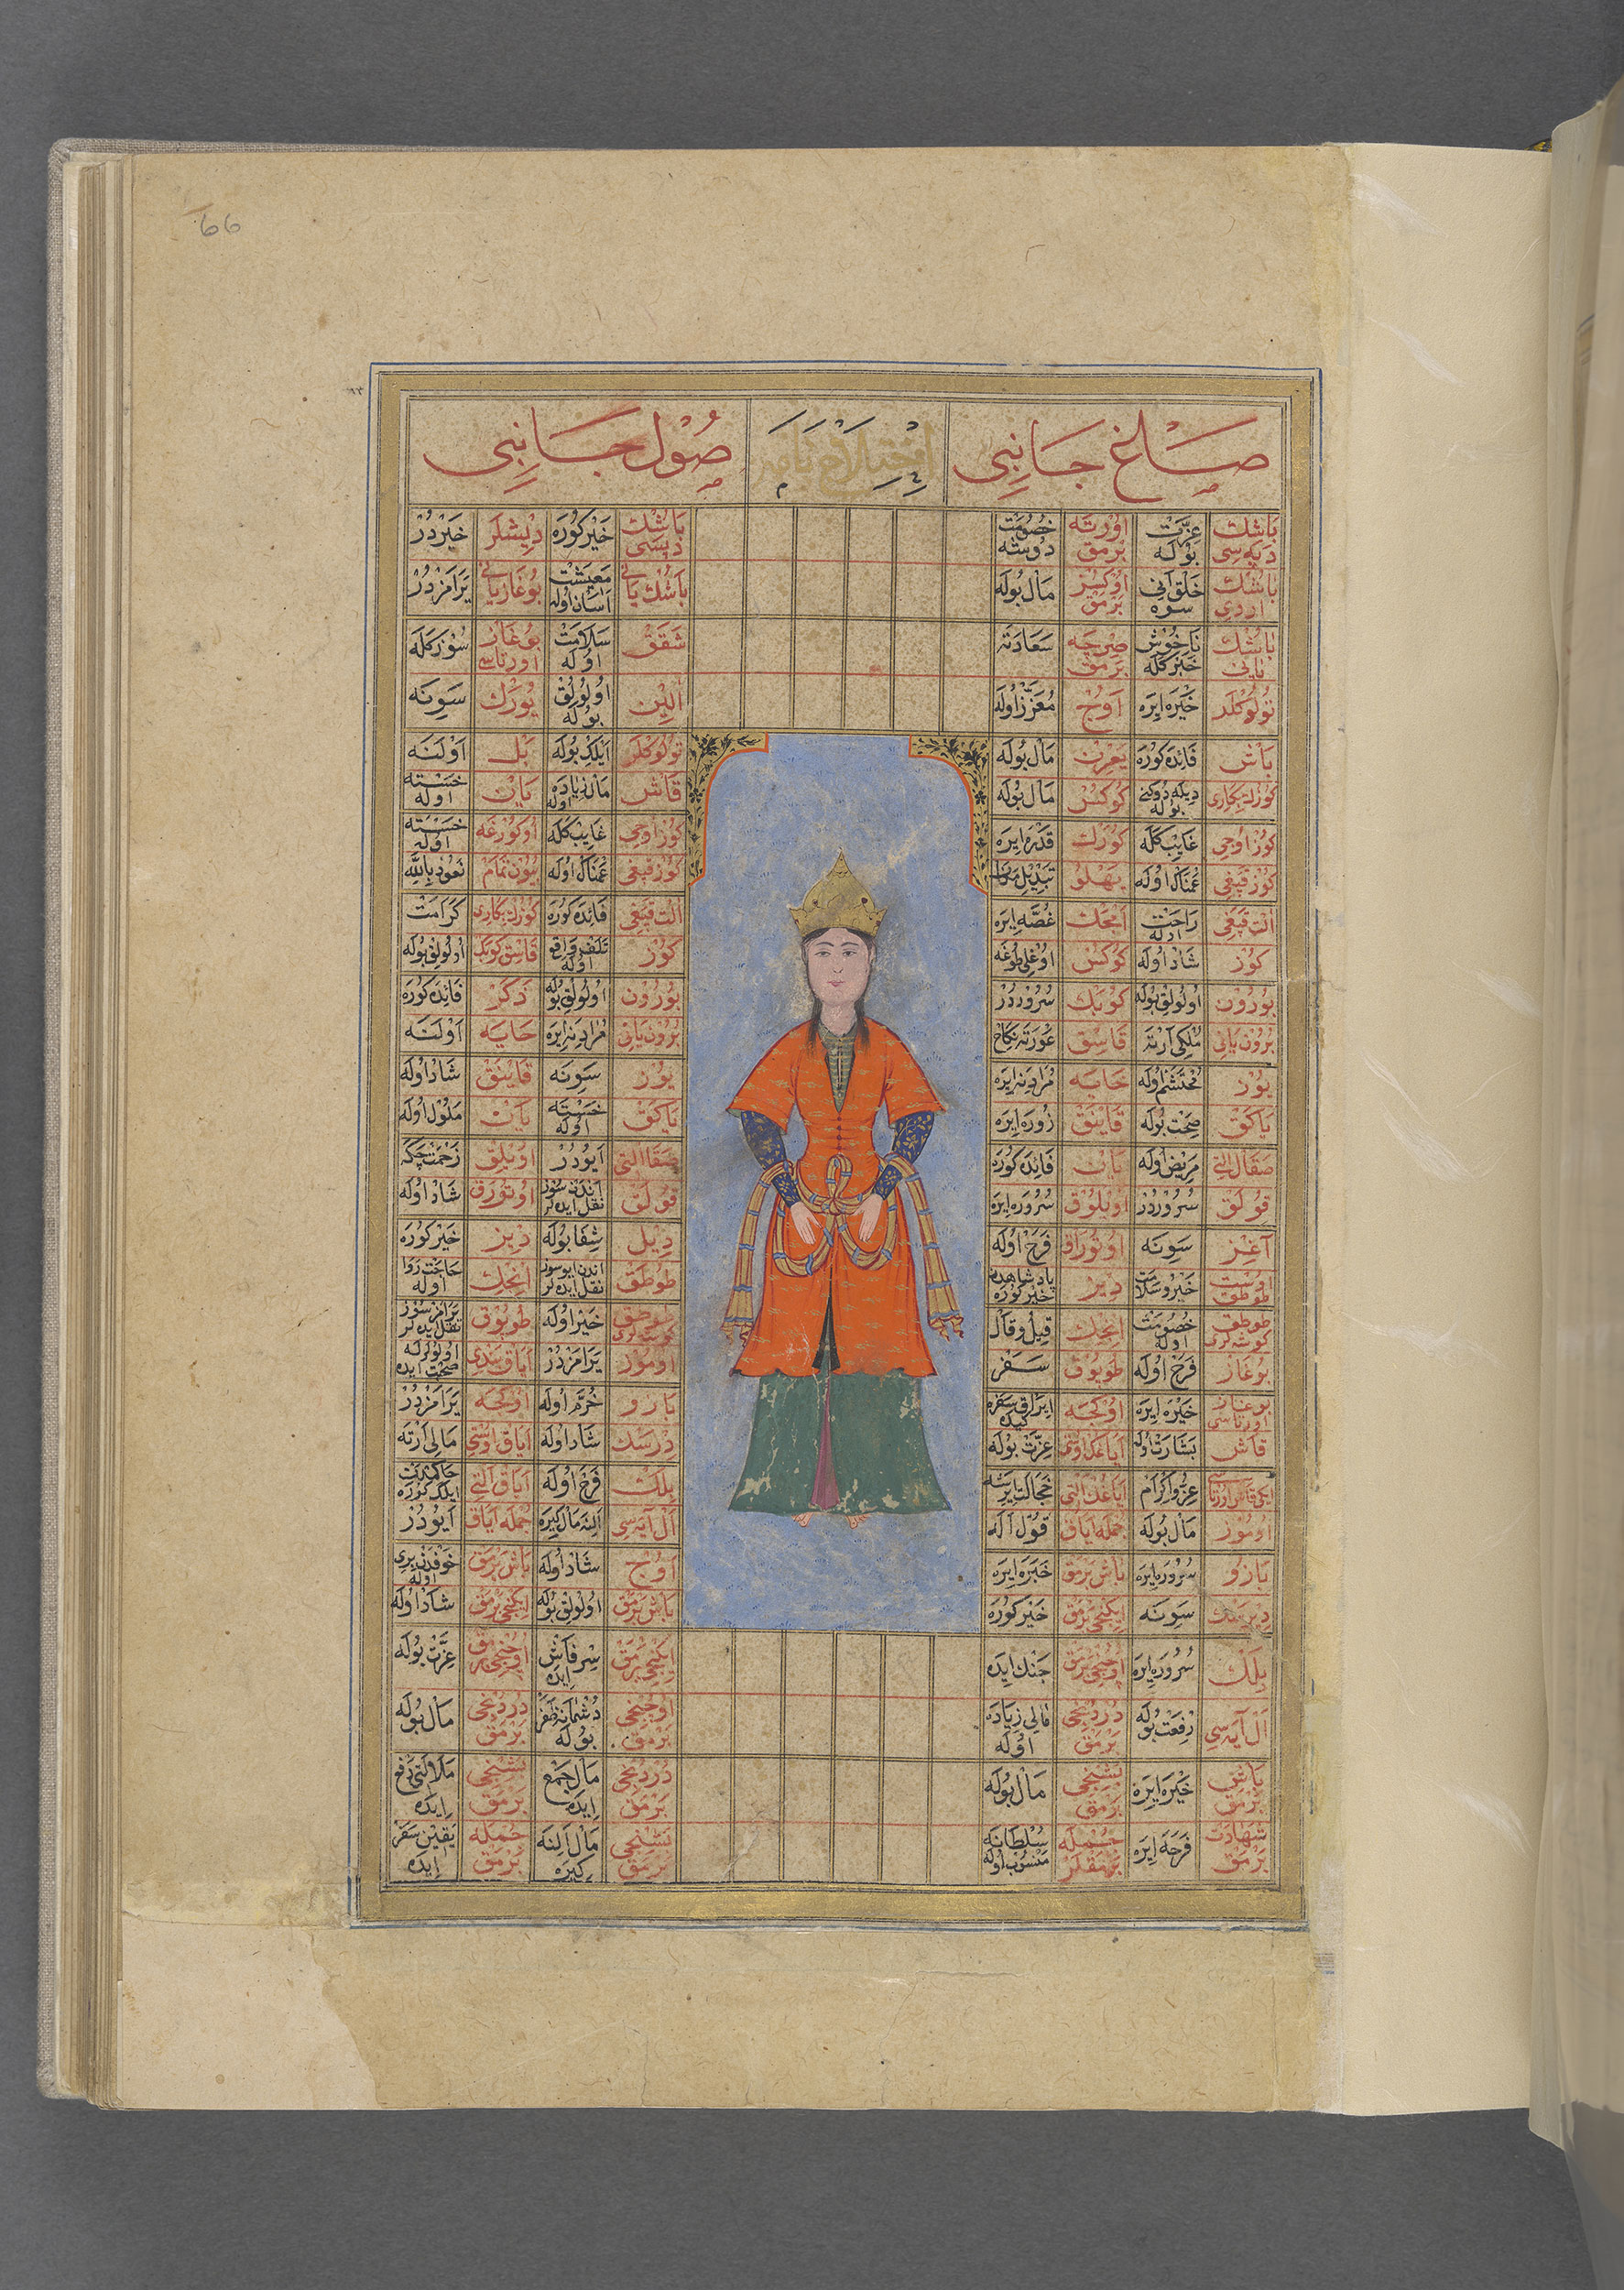 66
صاغ جانبی
اختلاج نامه
صول جانبی
باشك دپه‌سی عزت بوله اورته برمق خصومت دوسته
باشك اردی خلق آنی سوه برمق مال بوله
باشك یانی ناخوش خبر كله صرچه برمق سعادته
تولوكلر خیره ایره آوج معزز اوله
باش فائده كوره یغرن مال بوله
بوله كوكس مال بوله
كوز اوجی غایب كله كورك قدره ایره
كوز قپغی غمناك اوله پهلو تبدیل
الت قپغی راحت اوله امجك غصه ایره
كوز شاد اوله كوكس اوغلی طوغه
بورون اولولق بوله كوبك سروردر
برون یانی ملكی آرته قاسق عورته نكاح
یوز محتشم اوله خایه مراد‌نه ایره
یاكق صحت بوله قاینق زوره ایره
صقال التی مریض اوله یان فائده كوره
قولق سروردر اویلوق سروره ایره
آغز سونه اوتوراق فرح اوله
اوست طوطق خیر و سلامت دیز پادشاهدن خیر كوره
طوطق كوشه‌لری خصومت اوله انجك قیل و قال
بوغاز فرح اوله طوبوق سفر
بوغاز اورتاسی خیره ایره اوكجه ایراق سفره كیده
قاش بشارت اوله ایاغك اوستی عزت بوله
ایكی قاش اورتاسی عز و اكرام ایاغك التی خجالت ایرشه
اوموز مال بوله جمله ایاق قول آله
بازو سروره ایره باش برمق خیره ایره
دیرسك سونه ایكنجی برمق خیر كوره
بلك سروره ایره اوچنجی برمق جنك ایده
ال آیه‌سی رفعت بوله دردنجی برمق مالی زیاده اوله
باش برمق خیره ایره بشنجی برمق مال بوله
شهادت برمق فرحه ایره جمله برمقلر سلطانه منسوب اوله
باشك دپسی خیر كوره دیشلر خیردر
باشك یانی معیشت آسان اوله بوغاز یانی یرامزدر
شقق سلامت اوله بوغاز اورتاسی سوز كله
آلین اولولق بوله یورك سونه
تولوكلر ایلك بوله بل اولنه
قاش مال زیاده اوله یان خسته اوله
كوز اوجی غایب كله اوكورغه خسته اوله
كوز قپغی غمناك اوله بیون تمام نعوذ بالله
الت قپغی فائده كوره كوزك بكاری كرامت
كوز تلف واقع اوله قاسق كوبك اولولق بوله
بورون اولولق بوله ذكر فائده كوره
برون یانی مراد‌نه ایره خایه اولنه
یوز سونه قاینق شاد اوله
یاكق خسته اوله یان ملول اوله
صقال التی ایودر اویلق زحمت چكه
قولق آندن سوز نقل ایده‌لر اوتورق شاد اوله
دیل شفا بوله دیز خیر كوره
طوطق اندن ایو سوز نقل ایده‌لر انجك حاجت روا اوله
طوطق كوشه‌لری خیر اوله طوبوق یرامز سوز نقل ایده‌لر
اوموز یرامزدر ایاق بندی اولولرله صحبت ایده
بازو خرم اوله اوكجه یرامزدر
درسك شاد اوله ایاق اوستی مالی ارته
بلك فرح اوله ایاق التی ایلك كوره
ال آیه‌سی النه مال كیره جمله ایاق ایودر
آوج شاد اوله باش برمق خوفدن بری اوله
باش برمق اولولق بوله ایكنجی برمق شاد اوله
ایكنجی برمق سر فاش ایده اوچنجی برمق عزت بوله
اوچنجی برمق دشمانه ظفر بوله دردنجی برمق مال بوله
دردنجی برمق مال جمع ایده بشنجی برمق ملالتی دفع ایده
بشنجی برمق مال النه كیره جمله برمق یقین سفر ایده